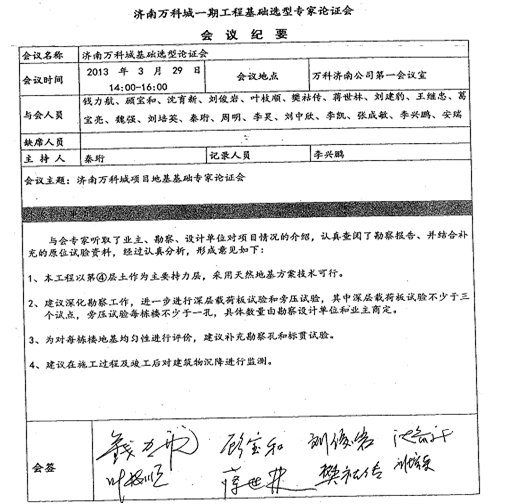 济南万科城一期工程基础选型专家论证会
会议纪要
会议名称 济南万科城基础选型论证会
会议时间 2013 年 3 月 29 日 14:00-16:00 会议地点 万科济南公司第一会议室
与会人员 钱力航、顾宝和、沈育新、刘俊岩、叶枝顺、樊祜传、蒋世林、刘建豹、王继忠、葛
宝亮、魏强、刘培英、秦珩、周明、李昊、刘中欣、李凯、张成敏、李兴鹏、安瑞
缺席人员
主 持 人 秦珩 记录人员 李兴鹏
会议主题：济南万科城项目地基基础专家论证会
与会专家听取了业主、勘察、设计单位对项目情况的介绍，认真查阅了勘察报告、并结合补
充的原位试验资料，经过认真分析，形成意见如下：
1、本工程以第④层土作为主要持力层，采用天然地基方案技术可行。
2、建议深化勘察工作，进一步进行深层载荷板试验和旁压试验，其中深层载荷板试验不少于三
个试点，旁压试验每栋楼不少于一孔，具体数量由勘察设计单位和业主商定。
3、为对每栋楼地基均匀性进行评价，建议补充勘察孔和标贯试验。
4、建议在施工过程及竣工后对建筑物沉降进行监测。
会签
钱力航 顾宝和 刘俊岩
叶枝顺 蒋世林 樊祜传